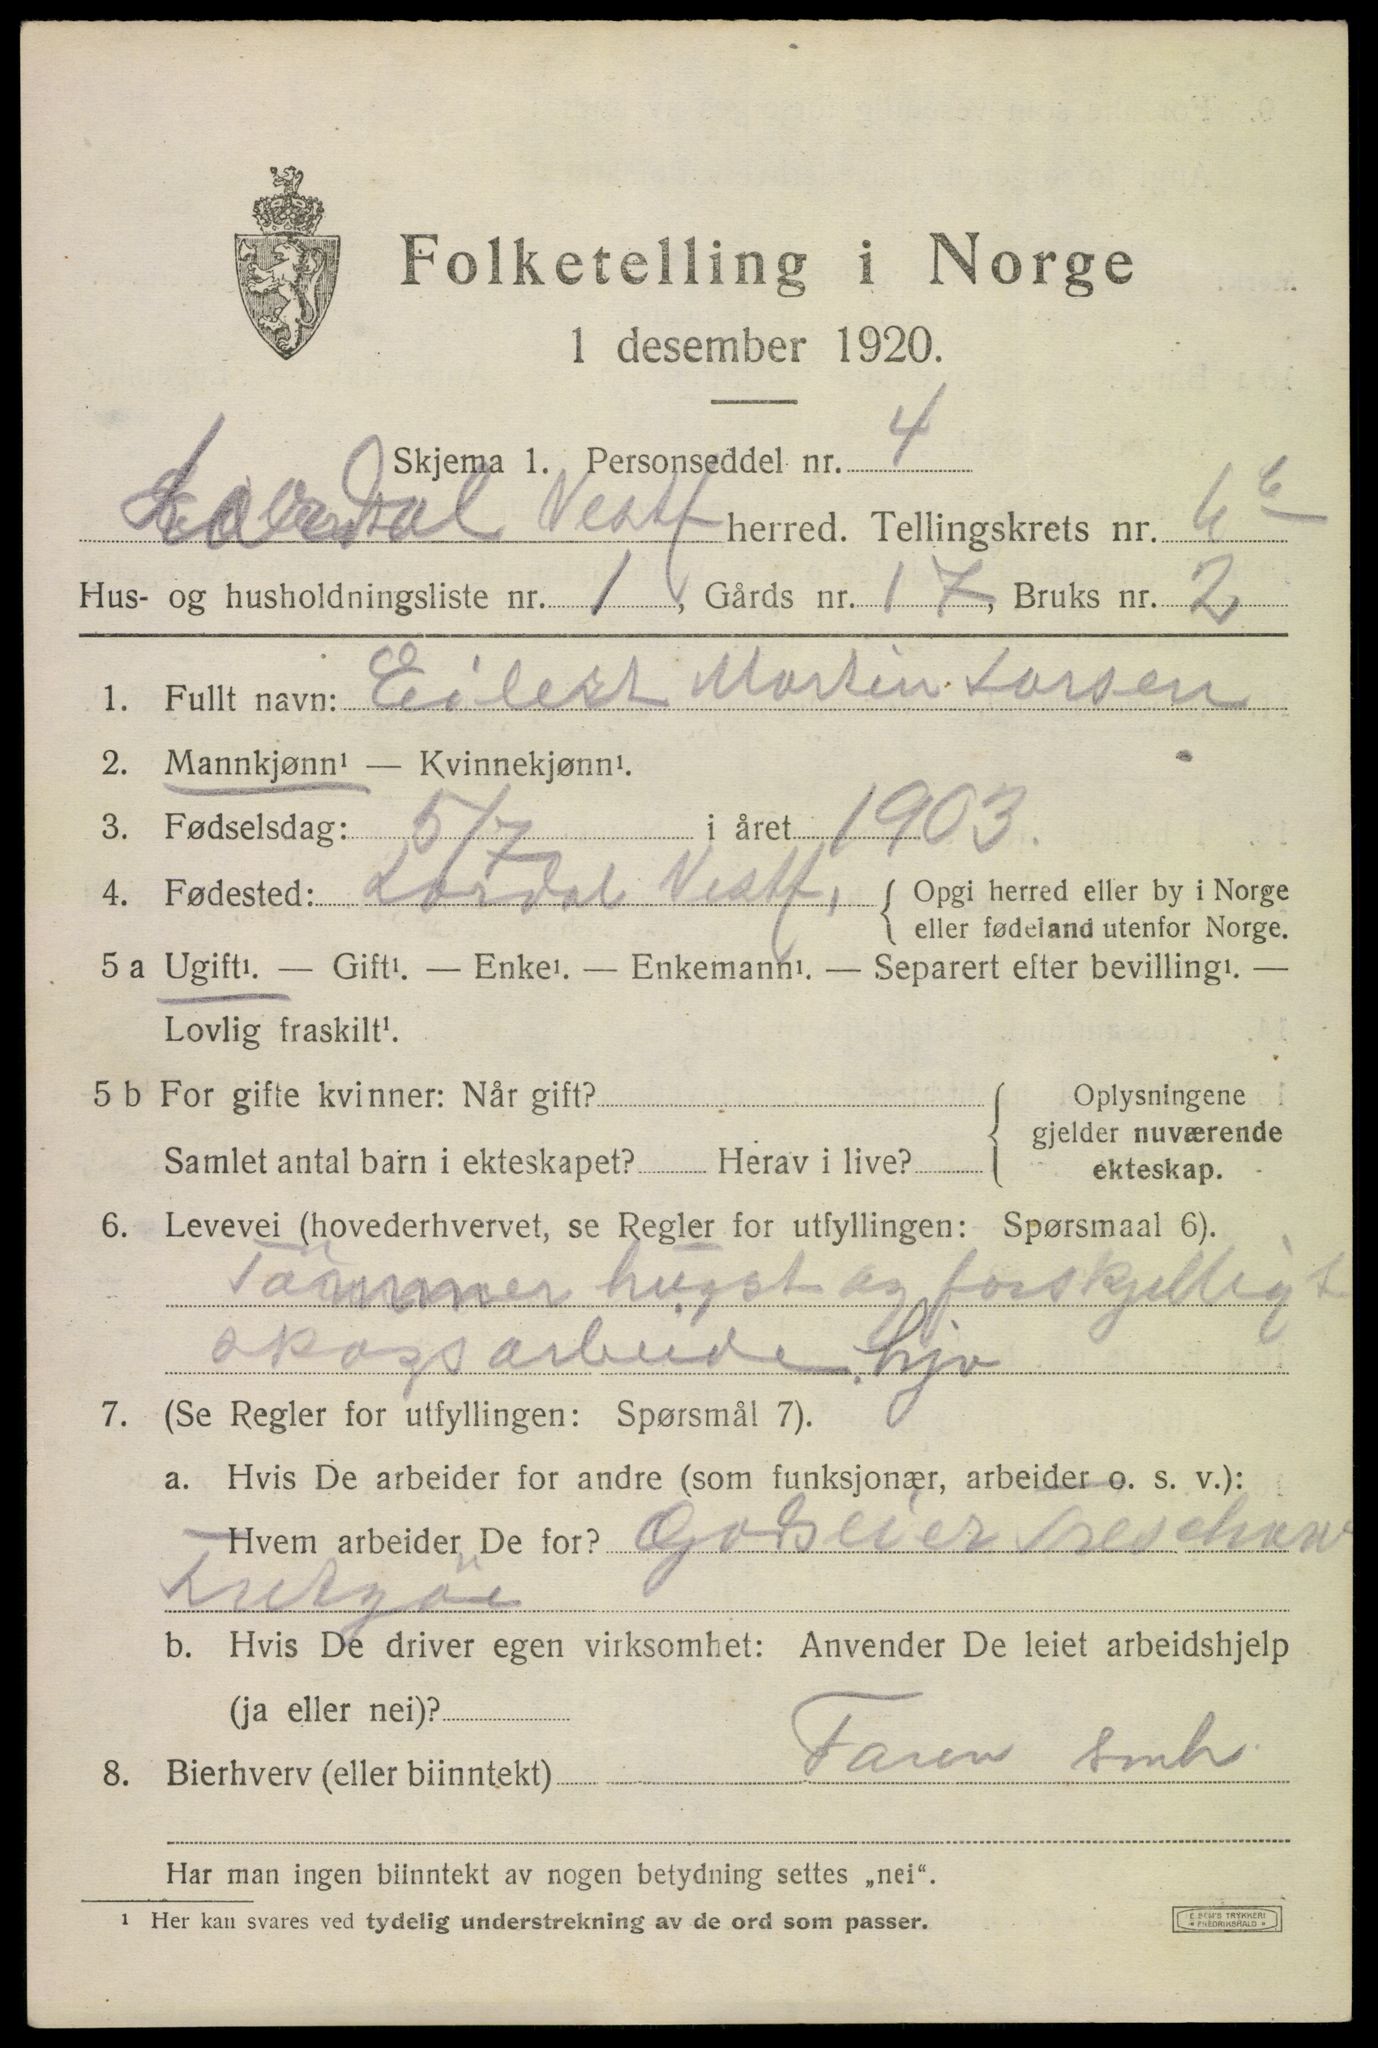 Folketelling i Norge
1 desember 1920.
Skjema 1. Personseddel nr. 4
Lardal Vestf herred. Tellingskrets nr. 6
Hus- og husholdningsliste nr. 1, Gårds nr. 17, Bruks nr. 2
1. Fullt navn: Eilert Martin Larsen
2. Mannkjønn¹ — Kvinnekjønn¹.
3. Fødselsdag: 5/7 i året 1903.
4. Fødested: Lardal Vestf. { Opgi herred eller by i Norge
eller fødeland utenfor Norge.
5 a Ugift¹. — Gift¹. — Enke¹. — Enkemann¹. — Separert efter bevilling¹. —
Lovlig fraskilt¹.
5 b For gifte kvinner: Når gift? { Oplysningene
gjelder nuværende
Samlet antal barn i ekteskapet? Herav i live? ekteskap.
6. Levevei (hovederhvervet, se Regler for utfyllingen: Spørsmaal 6).
Tømmer hugst og forskjelligt
skogsarbeide hjv
7. (Se Regler for utfyllingen: Spørsmål 7).
a. Hvis De arbeider for andre (som funksjonær, arbeider o. s. v.):
Hvem arbeider De for? Godseier Treschow
b. Hvis De driver egen virksomhet: Anvender De leiet arbeidshjelp
(ja eller nei)?
8. Bierhverv (eller biinntekt) Faren smbr.
Har man ingen biinntekt av nogen betydning settes „nei“.
¹ Her kan svares ved tydelig understrekning av de ord som passer.
E. SEM'S TRYKKERI
FREDRIKSHALD